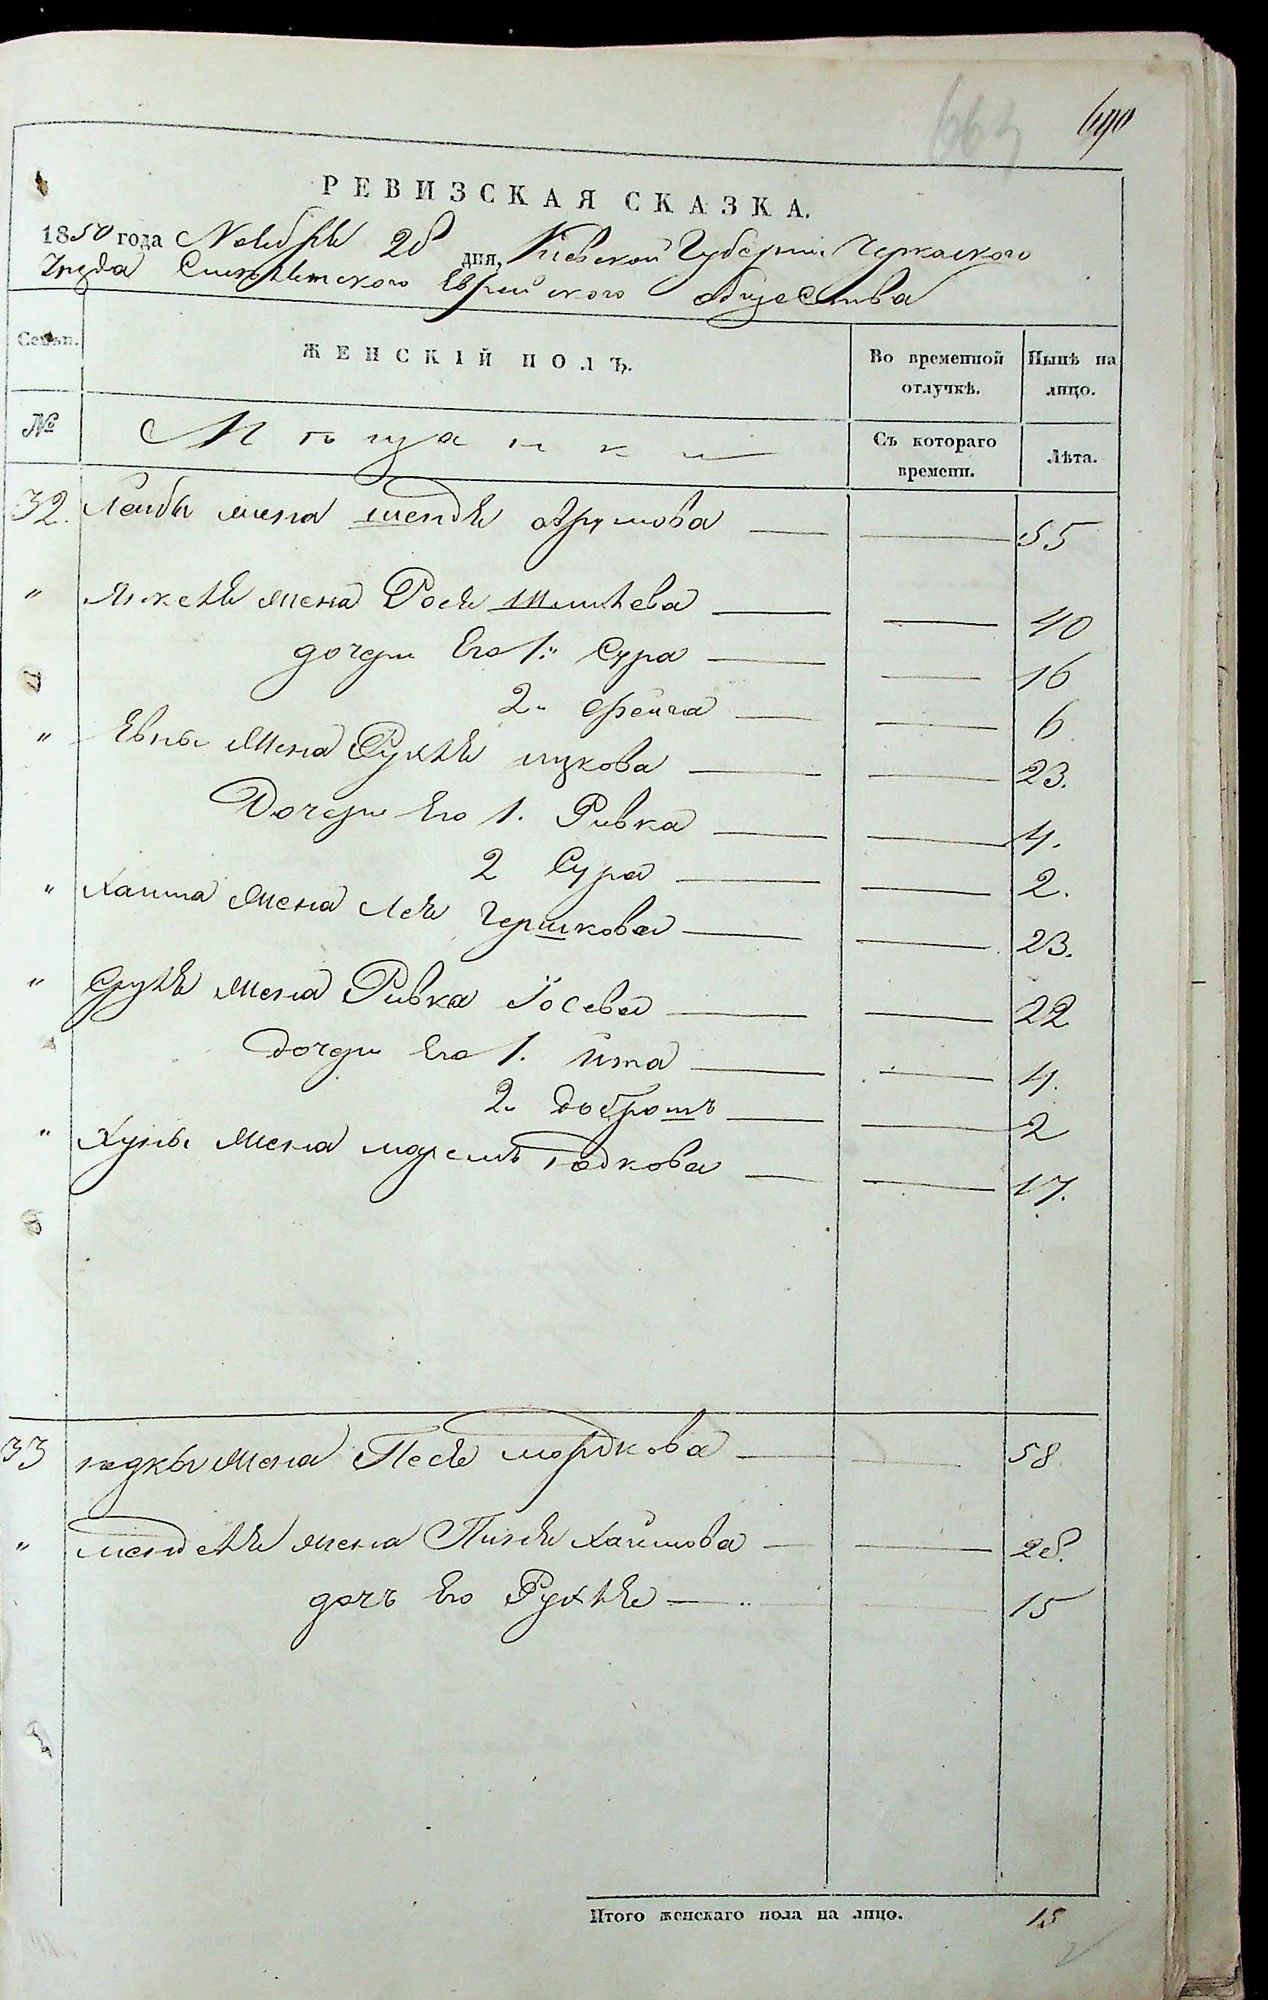 663
690
РЕВИЗСКАЯ СКАЗКА.
1850 года Ноября 28 дня, Киевской Губернии Черкаского
Уезда Смелянского Еврейского общества
Семьи.
ЖЕНСКІЙ ПОЛЪ.
Во временной отлучкѣ.
Нынѣ на лицо.
№
Мѣщанки
Съ котораго времени.
Лѣта.
32. Лейбы жена Шендля Аврумова 55
" Янкеля жена Рося 40
дочери Его 1. Сура 16
2. Фейга 6
" Евны жена Рухля Ицкова 23.
Дочери Его 1. Ривка 4.
2 Сура 2.
" Хаима жена Лея Гершкова 23.
" Сруля жена Ривка Іосева 22
Дочери Его 1. Ита 4.
2. Доброшъ 2
" жена Годкова 17.
33 Годки жена Песя Мордкова 58
" Менделя жена Хаимова 28.
дочь Его Рухля 15
Итого женскаго пола на лицо. 15